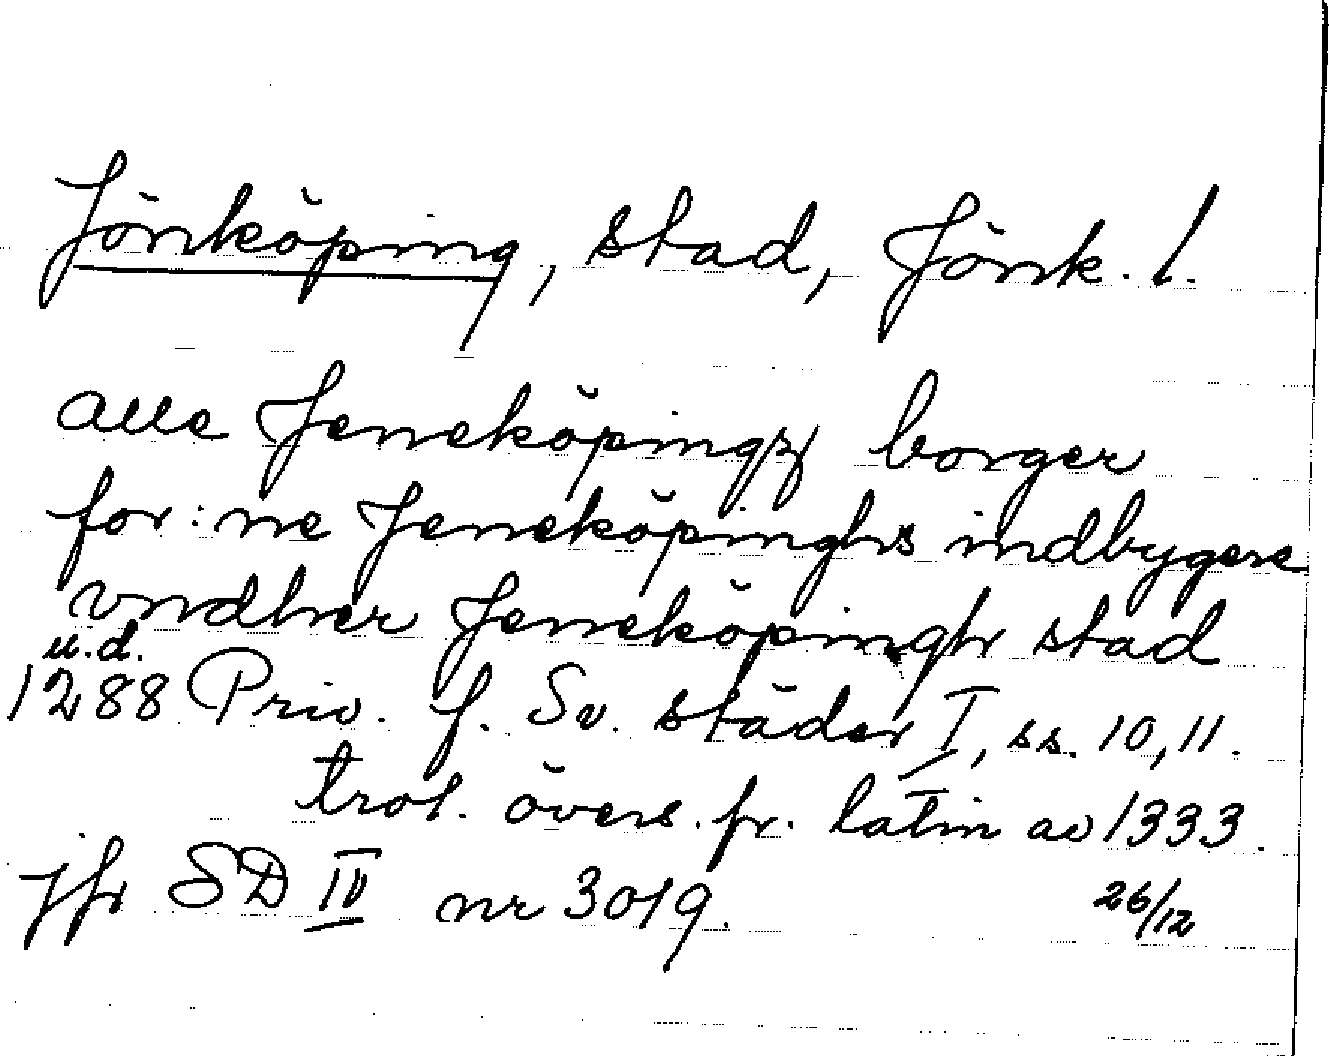 Jönköping, stad, Jönk. l.
alle Jeneköpingz borger
for:ne Jeneköpinghs indbygere
vndher Jeneköpingh stad
u.d.
1288 Priv. f. Sv. städer I, ss. 10, 11.
trol. övers. fr. latin av 1333.
jfr SD IV nr 3019.
26/12